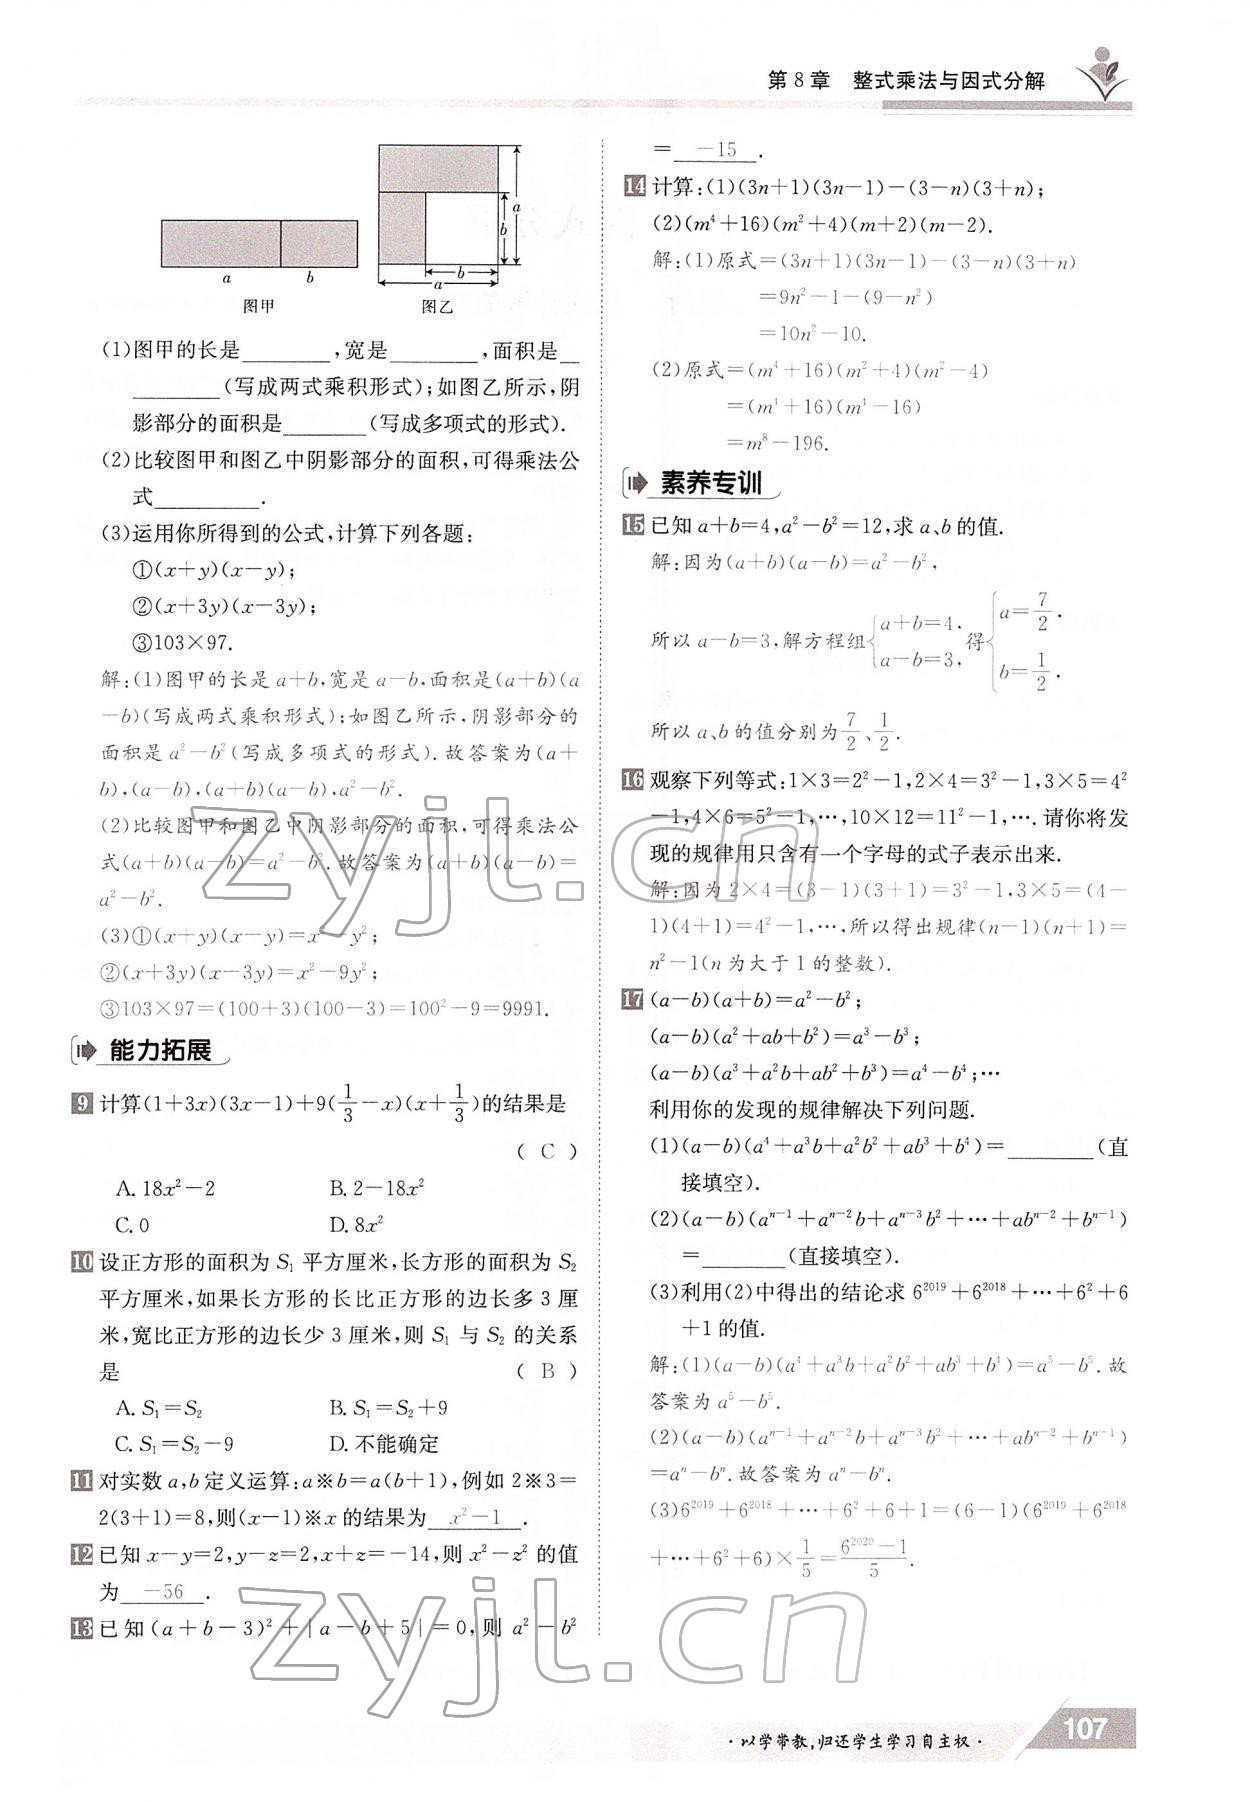 第8章 整式乘法与因式分解
a
b
图甲
a
b
b
a
图乙
(1)图甲的长是________,宽是________,面积是__
________(写成两式乘积形式);如图乙所示,阴
影部分的面积是________(写成多项式的形式).
(2)比较图甲和图乙中阴影部分的面积,可得乘法公
式__________.
(3)运用你所得到的公式,计算下列各题:
①(x+y)(x-y);
②(x+3y)(x-3y);
③103×97.
解:(1)图甲的长是a+b,宽是a-b,面积是(a+b)(a
-b)(写成两式乘积形式);如图乙所示,阴影部分的
面积是a²-b²(写成多项式的形式).故答案为(a+
b),(a-b),(a+b)(a-b),a²-b².
(2)比较图甲和图乙中阴影部分的面积,可得乘法公
式(a+b)(a-b)=a²-b².故答案为(a+b)(a-b)=
a²-b².
(3)①(x+y)(x-y)=x²-y²;
②(x+3y)(x-3y)=x²-9y²;
③103×97=(100+3)(100-3)=100²-9=9991.
能力拓展
9 计算(1+3x)(3x-1)+9(1/3-x)(x+1/3)的结果是
( C )
A.18x²-2 B.2-18x²
C.0 D.8x²
10 设正方形的面积为S₁平方厘米,长方形的面积为S₂
平方厘米,如果长方形的长比正方形的边长多3厘
米,宽比正方形的边长少3厘米,则S₁与S₂的关系
是 ( B )
A.S₁=S₂ B.S₁=S₂+9
C.S₁=S₂-9 D.不能确定
11 对实数a,b定义运算:a※b=a(b+1),例如2※3=
2(3+1)=8,则(x-1)※x的结果为 x²-1 .
12 已知x-y=2,y-z=2,x+z=-14,则x²-z²的值
为 -56 .
13 已知(a+b-3)²+|a-b+5|=0,则a²-b²
= -15 .
14 计算:(1)(3n+1)(3n-1)-(3-n)(3+n);
(2)(m⁴+16)(m²+4)(m+2)(m-2).
解:(1)原式=(3n+1)(3n-1)-(3-n)(3+n)
=9n²-1-(9-n²)
=10n²-10.
(2)原式=(m⁴+16)(m²+4)(m²-4)
=(m⁴+16)(m⁴-16)
=m⁸-196.
素养专训
15 已知a+b=4,a²-b²=12,求a、b的值.
解:因为(a+b)(a-b)=a²-b²,
所以a-b=3,解方程组{a+b=4, a-b=3, 得{a=7/2, b=1/2,
所以a、b的值分别为7/2、1/2.
16 观察下列等式:1×3=2²-1,2×4=3²-1,3×5=4²
-1,4×6=5²-1,…,10×12=11²-1,….请你将发
现的规律用只含有一个字母的式子表示出来.
解:因为2×4=(3-1)(3+1)=3²-1,3×5=(4-
1)(4+1)=4²-1,…,所以得出规律(n-1)(n+1)=
n²-1(n为大于1的整数).
17 (a-b)(a+b)=a²-b²;
(a-b)(a²+ab+b²)=a³-b³;
(a-b)(a³+a²b+ab²+b³)=a⁴-b⁴;…
利用你的发现的规律解决下列问题.
(1)(a-b)(a⁴+a³b+a²b²+ab³+b⁴)=________(直
接填空).
(2)(a-b)(aⁿ⁻¹+aⁿ⁻²b+aⁿ⁻³b²+…+abⁿ⁻²+bⁿ⁻¹)
=________(直接填空).
(3)利用(2)中得出的结论求6²⁰¹⁹+6²⁰¹⁸+…+6²+6
+1的值.
解:(1)(a-b)(a⁴+a³b+a²b²+ab³+b⁴)=a⁵-b⁵.故
答案为a⁵-b⁵.
(2)(a-b)(aⁿ⁻¹+aⁿ⁻²b+aⁿ⁻³b²+…+abⁿ⁻²+bⁿ⁻¹)
=aⁿ-bⁿ.故答案为aⁿ-bⁿ.
(3)6²⁰¹⁹+6²⁰¹⁸+…+6²+6+1=(6-1)(6²⁰¹⁹+6²⁰¹⁸
+…+6²+6)×1/5=(6²⁰²⁰-1)/5.
zyjl.cn
zyjl.cn
·以学带教,归还学生学习自主权·
107